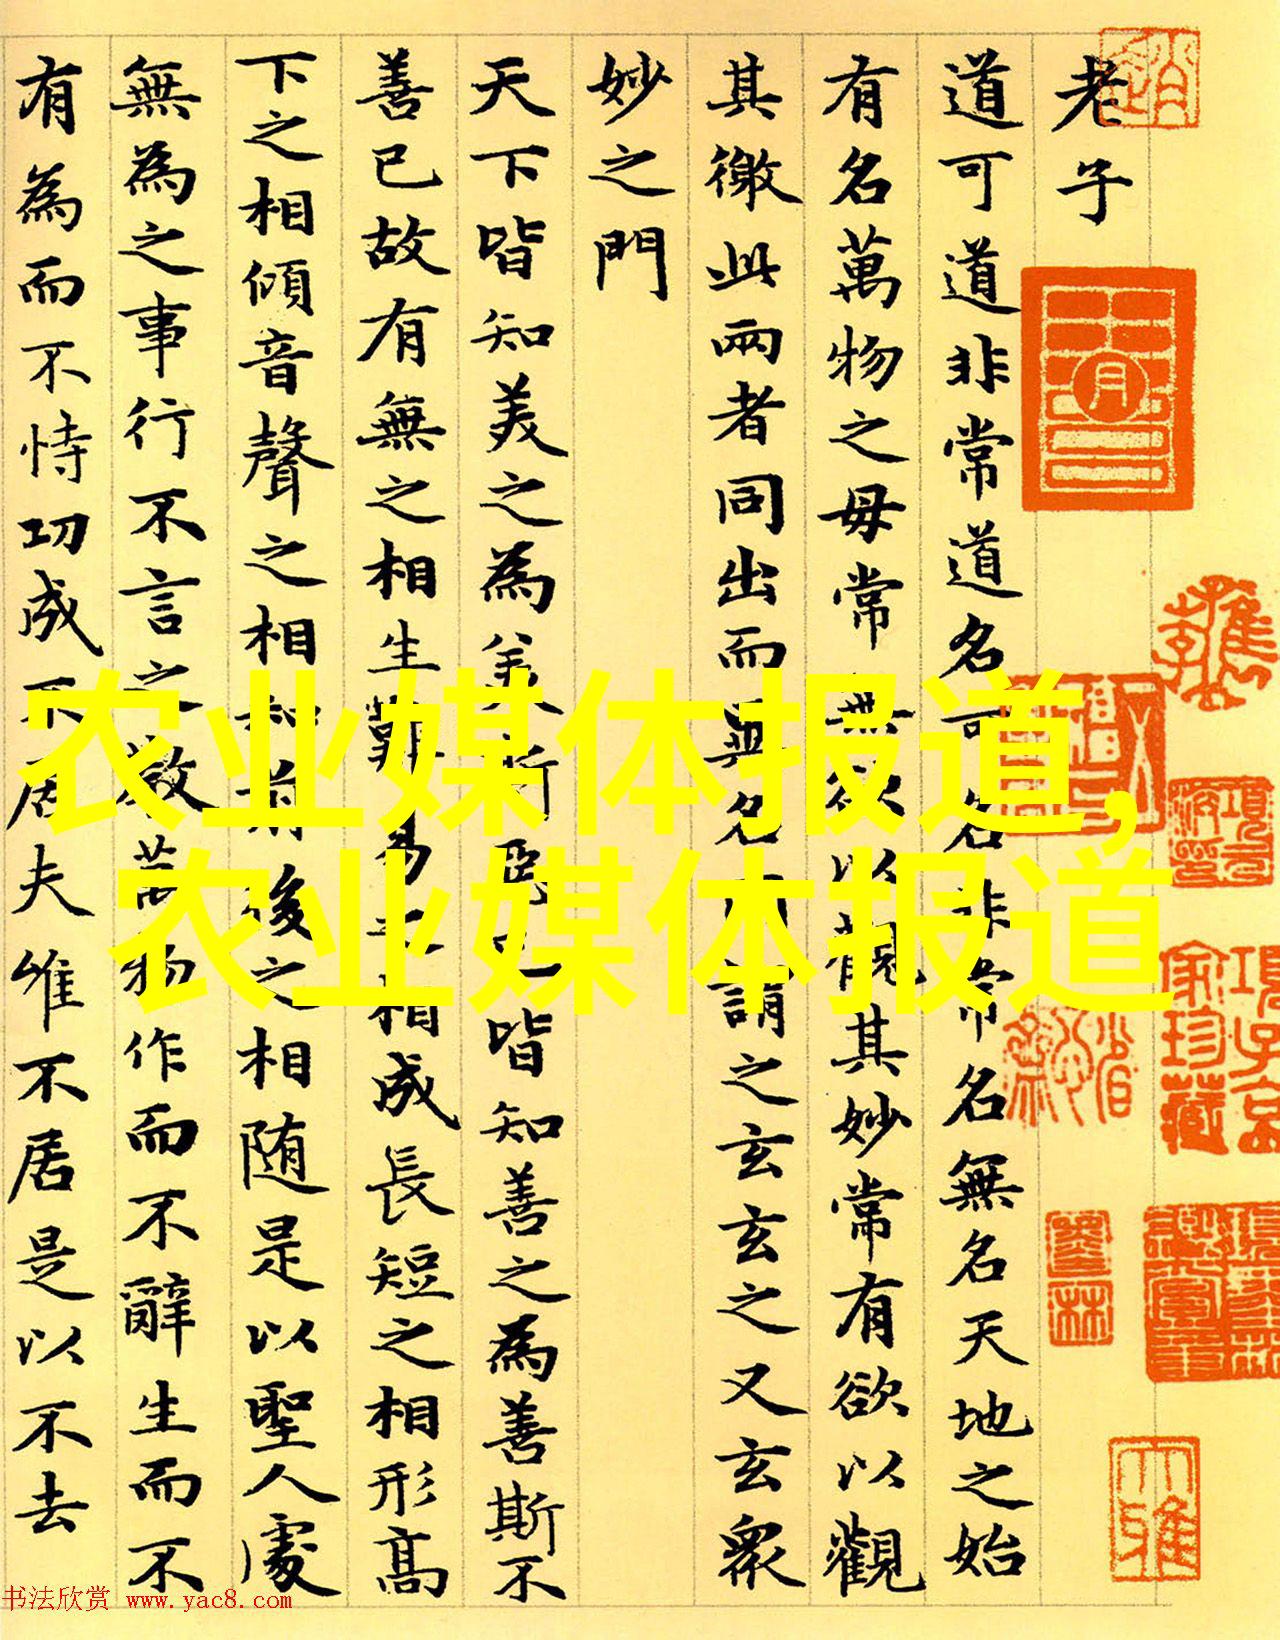 老子
道可道非常道名可名非常名無名天地之始
有名萬物之母常無欲以觀其妙常有欲以觀
其徼此兩者同出而異名同謂之玄玄之又玄眾
妙之門
天下皆知美之為美斯惡已皆知善之為善斯不
善已故有無之相生難易之相成長短之相形髙
下之相傾音聲之相和前後之相随是以聖人處
無為之事行不言之教萬物作而不辭生而不
有為而不恃功成不居夫唯不居是以不去
农业媒体报道,
农业媒体报道
項子京
家珍藏
书法欣赏 www.yac8.com